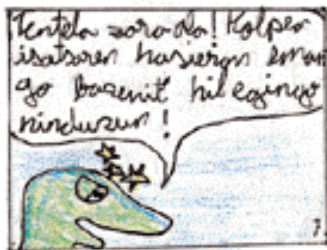 Tentela zoroa da! Kolpea
isatsaren hasieran eman
go bazenit hil egingo
ninduzun!
7